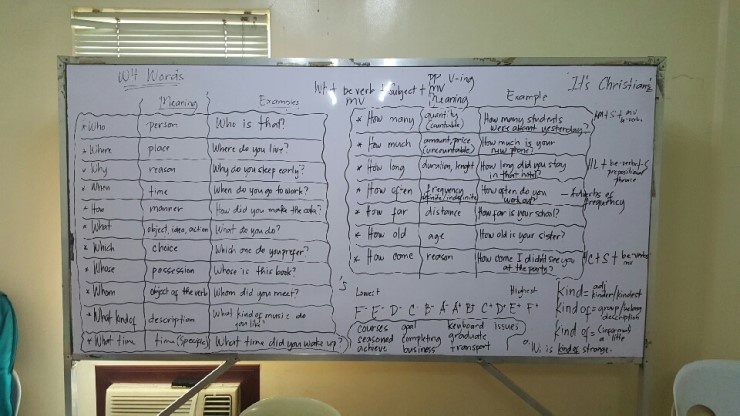 WH Words
Meaning Examples
* Who person Who is that?
* Where place Where do you live?
* Why reason Why do you sleep early?
* When time When do you go to work?
* How manner How did you make the cake?
* What object, idea, action What do you do?
* Which choice Which one do you prefer?
* Whose possession Whose is this book?
* Whom object of the verb Whom did you meet?
* What kind of description What kind of music do
you like?
* What time time (specific) What time did you wake up?
PP V-ing
WH + be verb + subject + mv
mv
"It's Christian's
Meaning Example
* How many quantity How many students
(countable) were absent yesterday?
* How much amount, price How much is your
(uncountable) new phone?
* How long duration, lenght How long did you stay
in that hotel?
* How often frequency How often do you
definite/indefinite work out?
* How far distance How far is your school?
* How old age How old is your sister?
* How come reason How come I didn't see you
at the party?
HM + S + mv
be-verb
HL + be-verb + S
prepositional
phrase
- Adverbs of
frequency
HC + S + be-verb
mv
's
Lowest Highest
F- E- D- C B- A- A+ B+ C+ D+ E+ F+
courses goal keyboard issues
seasoned completing graduate
achieve business transport
Kind = adj
kinder/kindest
Kind of = group/belong
description
Kind of = (informal)
a little
W. is kind of strange.